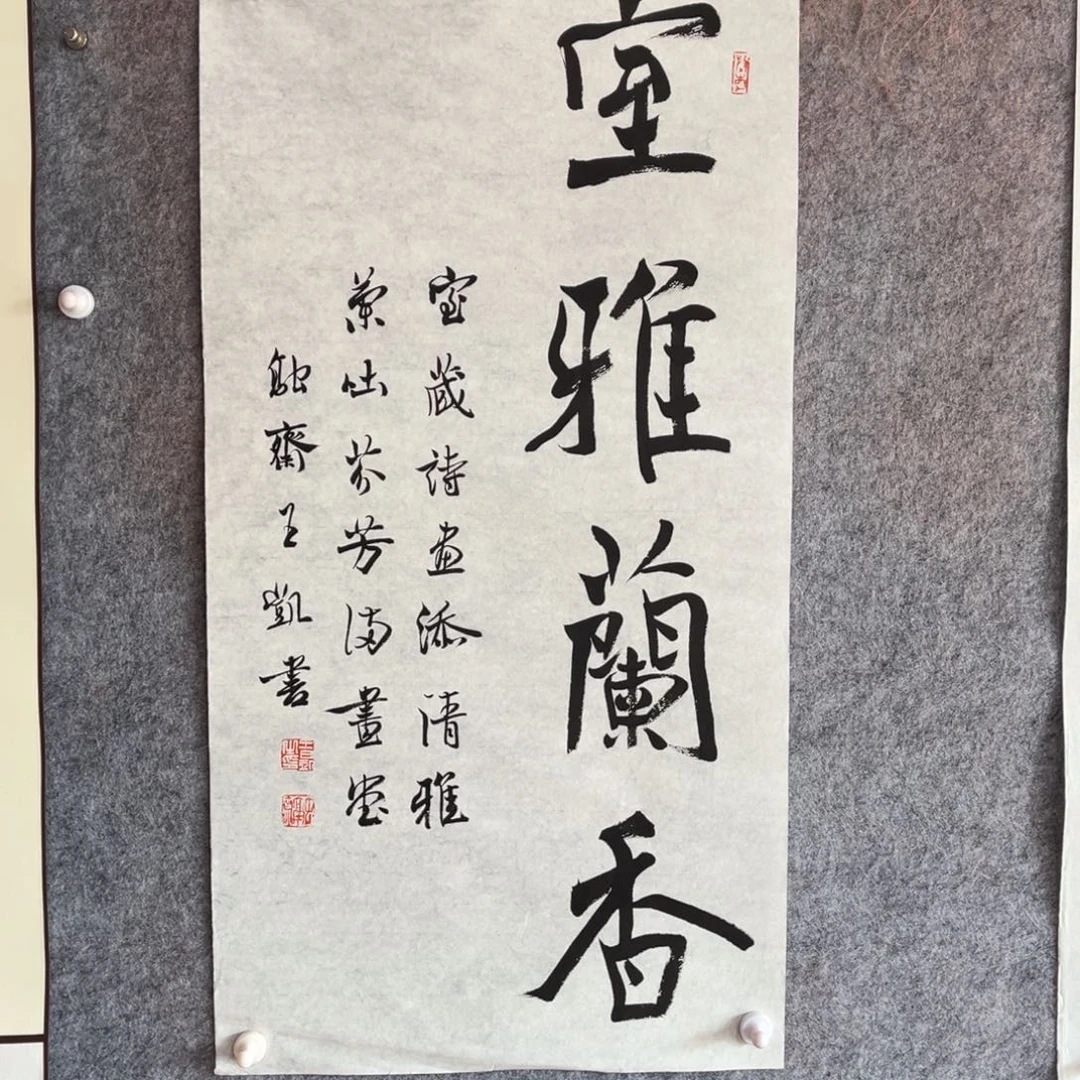 室雅蘭香
室藏詩画添清雅
蘭吐芬芳满畫堂
融齋王凱書